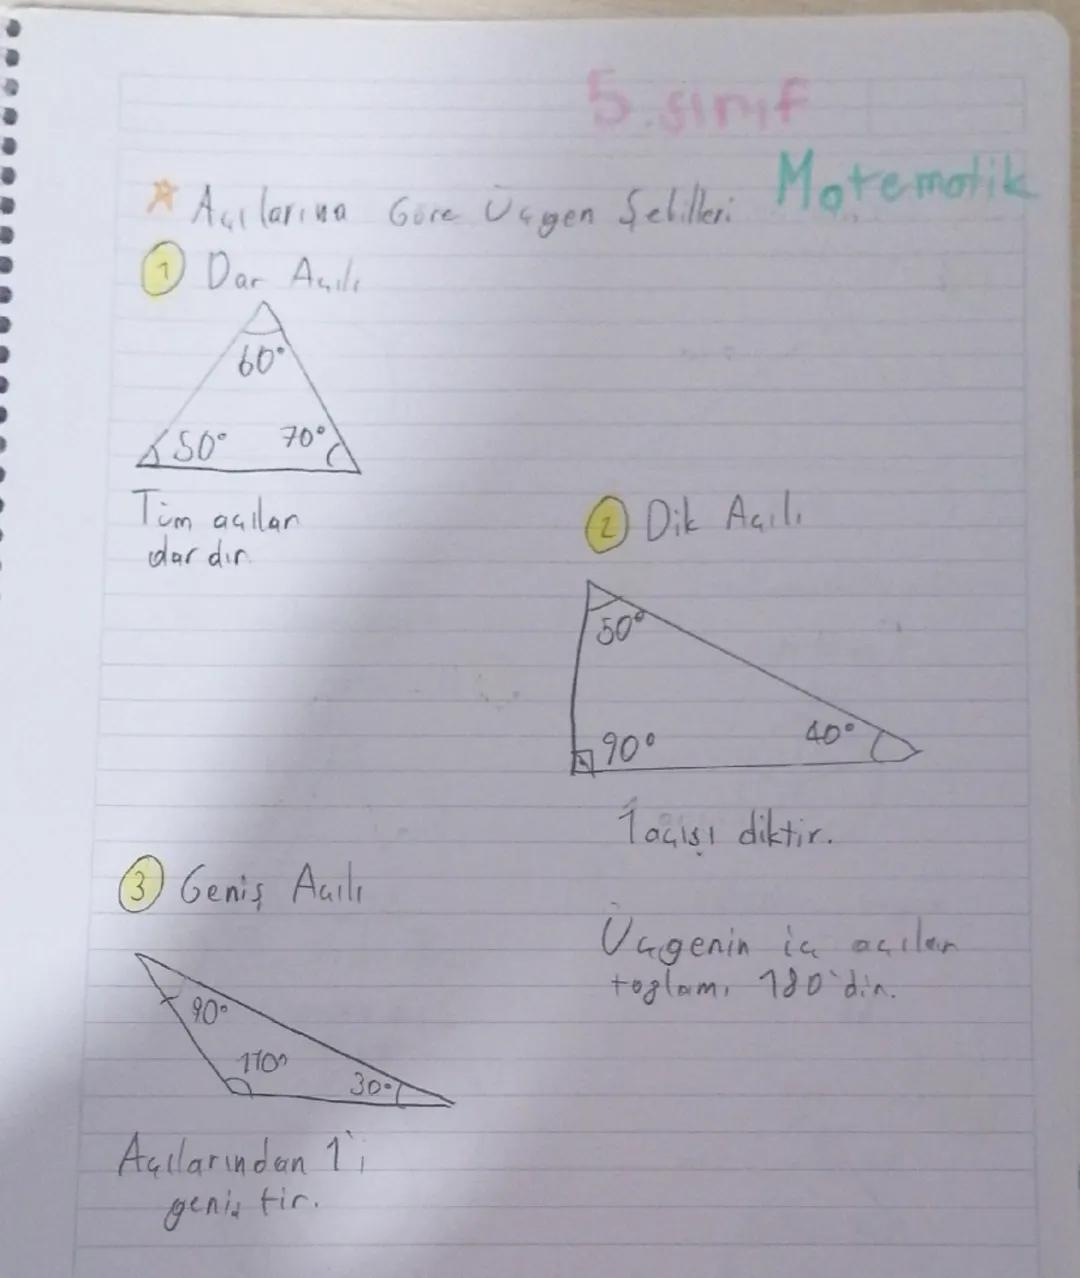 5.sınıf
Matematik
Açılarına Göre Üçgen Şekilleri
1 Dar Açılı
60°
50° 70°
Tüm açılar
dardır.
2 Dik Açılı
50°
90° 40°
1 açısı diktir.
3 Geniş Açılı
90°
110°
30°
Açılarından 1'i
geniştir.
Üçgenin iç açılar
toplamı 180'dir.